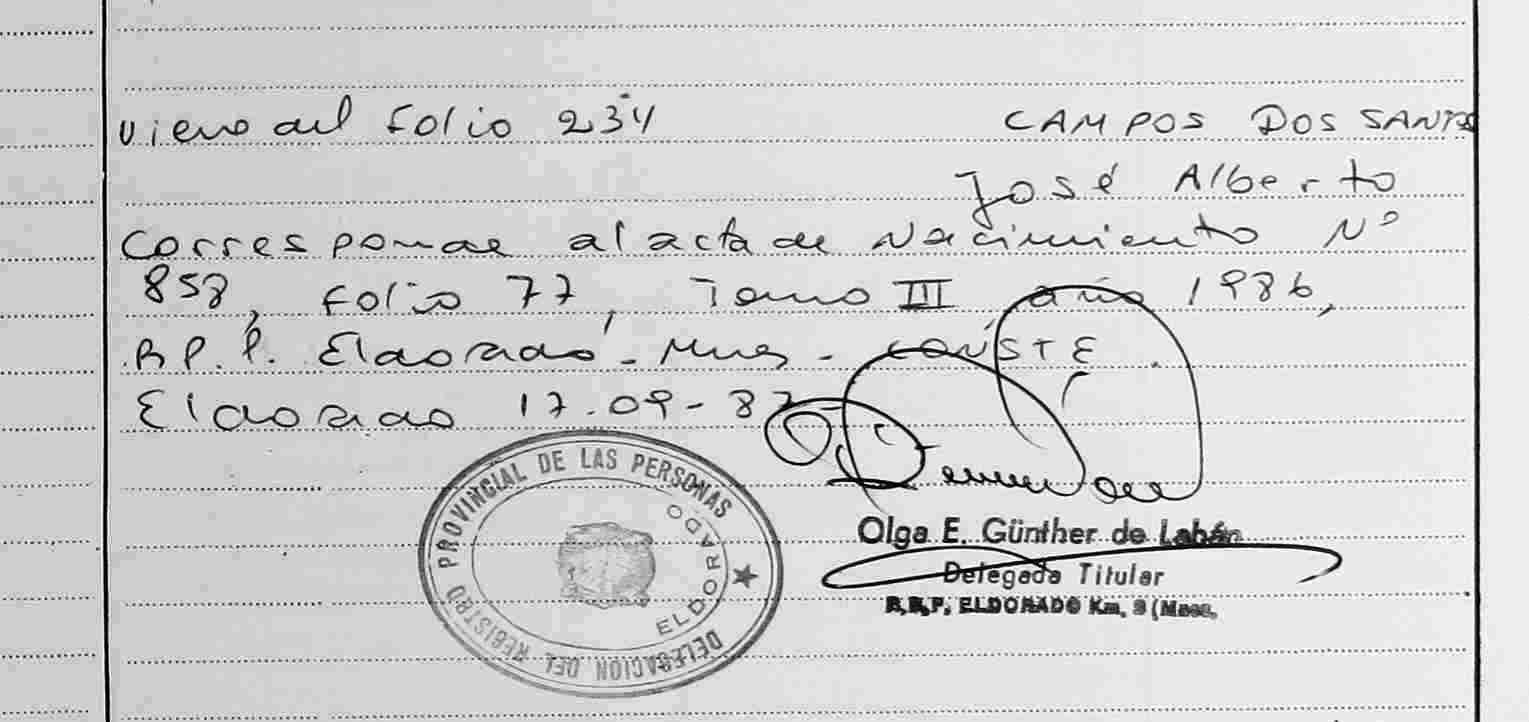 Viene del Folio 234 CAMPOS DOS SANTOS
José Alberto
Corresponde al acta de Nacimiento Nº
858, Folio 77, Tomo III año 1986,
R.P.P. Eldorado - Mnes - CONSTE.
Eldorado 17-09-87
DELEGACION DEL REGISTRO PROVINCIAL DE LAS PERSONAS
ELDORADO
Olga E. Günther de Labán
Delegada Titular
R.R.P. ELDORADO Km. 9 (Mnes.